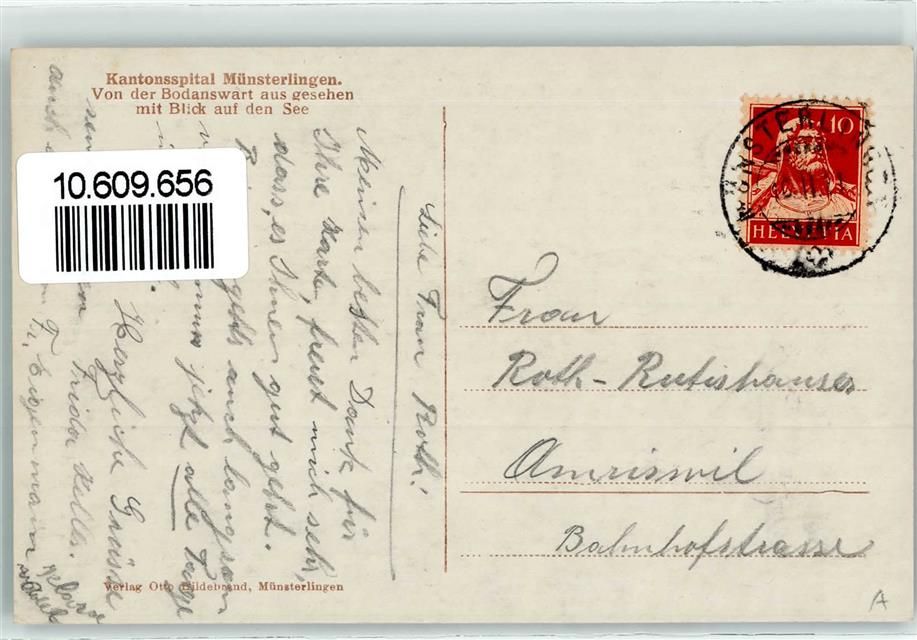 Kantonsspital Münsterlingen.
Von der Bodanswart aus gesehen
mit Blick auf den See
10.609.656
10
HELVETIA
Liebe Frau Roth!
Meinen besten Dank für
Ihre Karte, freut mich sehr,
dass, es Ihnen gut geht.
geht auch langsam
muss jetzt alle Tage
Herzliche Grüsse
Frida Keller.
Fr. Eigenmann
Frau
Roth-Rutishauser
Amriswil
Bahnhofstrasse
Verlag Otto Hildebrand, Münsterlingen
A